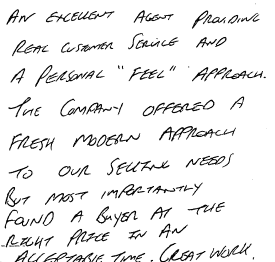 AN EXCELLENT AGENT PROVIDING
REAL CUSTOMER SERVICE AND
A PERSONAL "FEEL" APPROACH.
THE COMPANY OFFERED A
FRESH MODERN APPROACH
TO OUR SELLING NEEDS
BUT MOST IMPORTANTLY
FOUND A BUYER AT THE
RIGHT PRICE IN AN
ACCEPTABLE TIME. GREAT WORK.